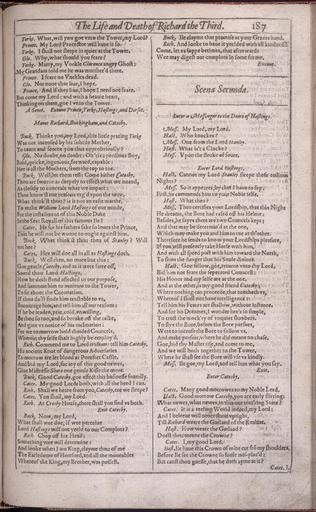 The Life and Death of Richard the Third. 187
Yorke. What, will you goe vnto the Tower, my Lord?
Prince. My Lord Protector will haue it so.
Yorke. I shall not sleepe in quiet at the Tower.
Glo. Why, what should you feare?
Yorke. Marry, my Vnckle Clarence angry Ghost:
My Grandam told me he was murther'd there.
Prince. I feare no Vnckles dead.
Glo. Nor none that liue, I hope.
Prince. And if they liue, I hope I need not feare.
But come my Lord: and with a heauie heart,
Thinking on them, goe I vnto the Tower.
A Senet. Exeunt Prince, Yorke, Hastings, and Dorset.
Manet Richard, Buckingham, and Catesby.
Buck. Thinke you, my Lord, this little prating Yorke
Was not incensed by his subtile Mother,
To taunt and scorne you thus opprobriously?
Glo. No doubt, no doubt: Oh 'tis a perillous Boy,
Bold, quicke, ingenious, forward, capable:
Hee is all the Mothers, from the top to toe.
Buck. Well, let them rest: Come hither Catesby,
Thou art sworne as deepely to effect what we intend,
As closely to conceale what we impart:
What think'st thou? is it not an easie matter,
To make William Lord Hastings of our minde,
For the installment of this Noble Duke
In the Seat Royall of this famous Ile?
Cates. He for his fathers sake so loues the Prince,
That he will not be wonne to ought against him.
Buck. What think'st thou then of Stanley? Will
not hee?
Cates. Hee will doe all in all as Hastings doth.
Buck. Well then, no more but this:
Goe gentle Catesby, and as it were farre off,
Sound thou Lord Hastings,
How he doth stand affected to our purpose,
And summon him to morrow to the Tower,
To sit about the Coronation.
Encourage him, and tell him all our reasons:
Be thou so too, and so breake off the talke,
And giue vs notice of his inclination:
For we to morrow hold diuided Councels,
Wherein thy selfe shalt highly be employ'd.
Rich. Commend me to Lord William: tell him Catesby,
His ancient Knot of dangerous Aduersaries
To morrow are let blood at Pomfret Castle,
And bid my Lord, for ioy of this good newes,
Giue Mistresse Shore one gentle Kisse the more.
Buck. Good Catesby, goe effect this businesse soundly.
Cates. My good Lords both, with all the heed I can.
Rich. Shall we heare from you, Catesby, ere we sleepe?
Cates. You shall, my Lord.
Rich. At Crosby House, there shall you find vs both.
Exit Catesby.
Buck. Now, my Lord,
What shall wee doe, if wee perceiue
Lord Hastings will not yeeld to our Complots?
Rich. Chop off his Head:
Something wee will determine:
And looke when I am King, clayme thou of me
The Earledome of Hereford, and all the moueables
Whereof the King, my Brother, was possest.
Buck. Ile clayme that promise at your Graces hand.
Rich. And looke to haue it yeelded with all kindnesse.
Come, let vs suppe betimes, that afterwards
Wee may digest our complots in some forme.
Exeunt.
Scena Secunda.
Enter a Messenger to the Doore of Hastings.
Mess. My Lord, my Lord.
Hast. Who knockes?
Mess. One from the Lord Stanley.
Hast. What is't a Clocke?
Mess. Vpon the stroke of foure.
Enter Lord Hastings.
Hast. Cannot my Lord Stanley sleepe these tedious
Nights?
Mess. So it appeares, by that I haue to say:
First, he commends him to your Noble selfe.
Hast. What then?
Mess. Then certifies your Lordship, that this Night
He dreamt, the Bore had rased off his Helme:
Besides, he sayes there are two Councels kept;
And that may be determin'd at the one,
Which may make you and him to rue at th'other.
Therefore he sends to know your Lordships pleasure,
If you will presently take Horse with him,
And with all speed post with him toward the North,
To shun the danger that his Soule diuines.
Hast. Goe fellow, goe, returne vnto thy Lord,
Bid him not feare the seperated Councell:
His Honor and my selfe are at the one,
And at the other, is my good friend Catesby;
Where nothing can proceede, that toucheth vs,
Whereof I shall not haue intelligence:
Tell him his Feares are shallow, without instance.
And for his Dreames, I wonder hee's so simple,
To trust the mock'ry of vnquiet slumbers.
To flye the Bore, before the Bore pursues,
Were to incense the Bore to follow vs,
And make pursuit, where he did meane no chase.
Goe, bid thy Master rise, and come to me,
And we will both together to the Tower,
Where he shall see the Bore will vse vs kindly.
Mess. Ile goe, my Lord, and tell him what you say.
Exit.
Enter Catesby.
Cates. Many good morrowes to my Noble Lord.
Hast. Good morrow Catesby, you are early stirring:
What newes, what newes, in this our tott'ring State?
Cates. It is a reeling World indeed, my Lord:
And I beleeue will neuer stand vpright,
Till Richard weare the Garland of the Realme.
Hast. How weare the Garland?
Doest thou meane the Crowne?
Cates. I, my good Lord.
Hast. Ile haue this Crown of mine cut frõ my shoulders,
Before Ile see the Crowne so foule mis-plac'd:
But canst thou guesse, that he doth ayme at it?
Cates. I,